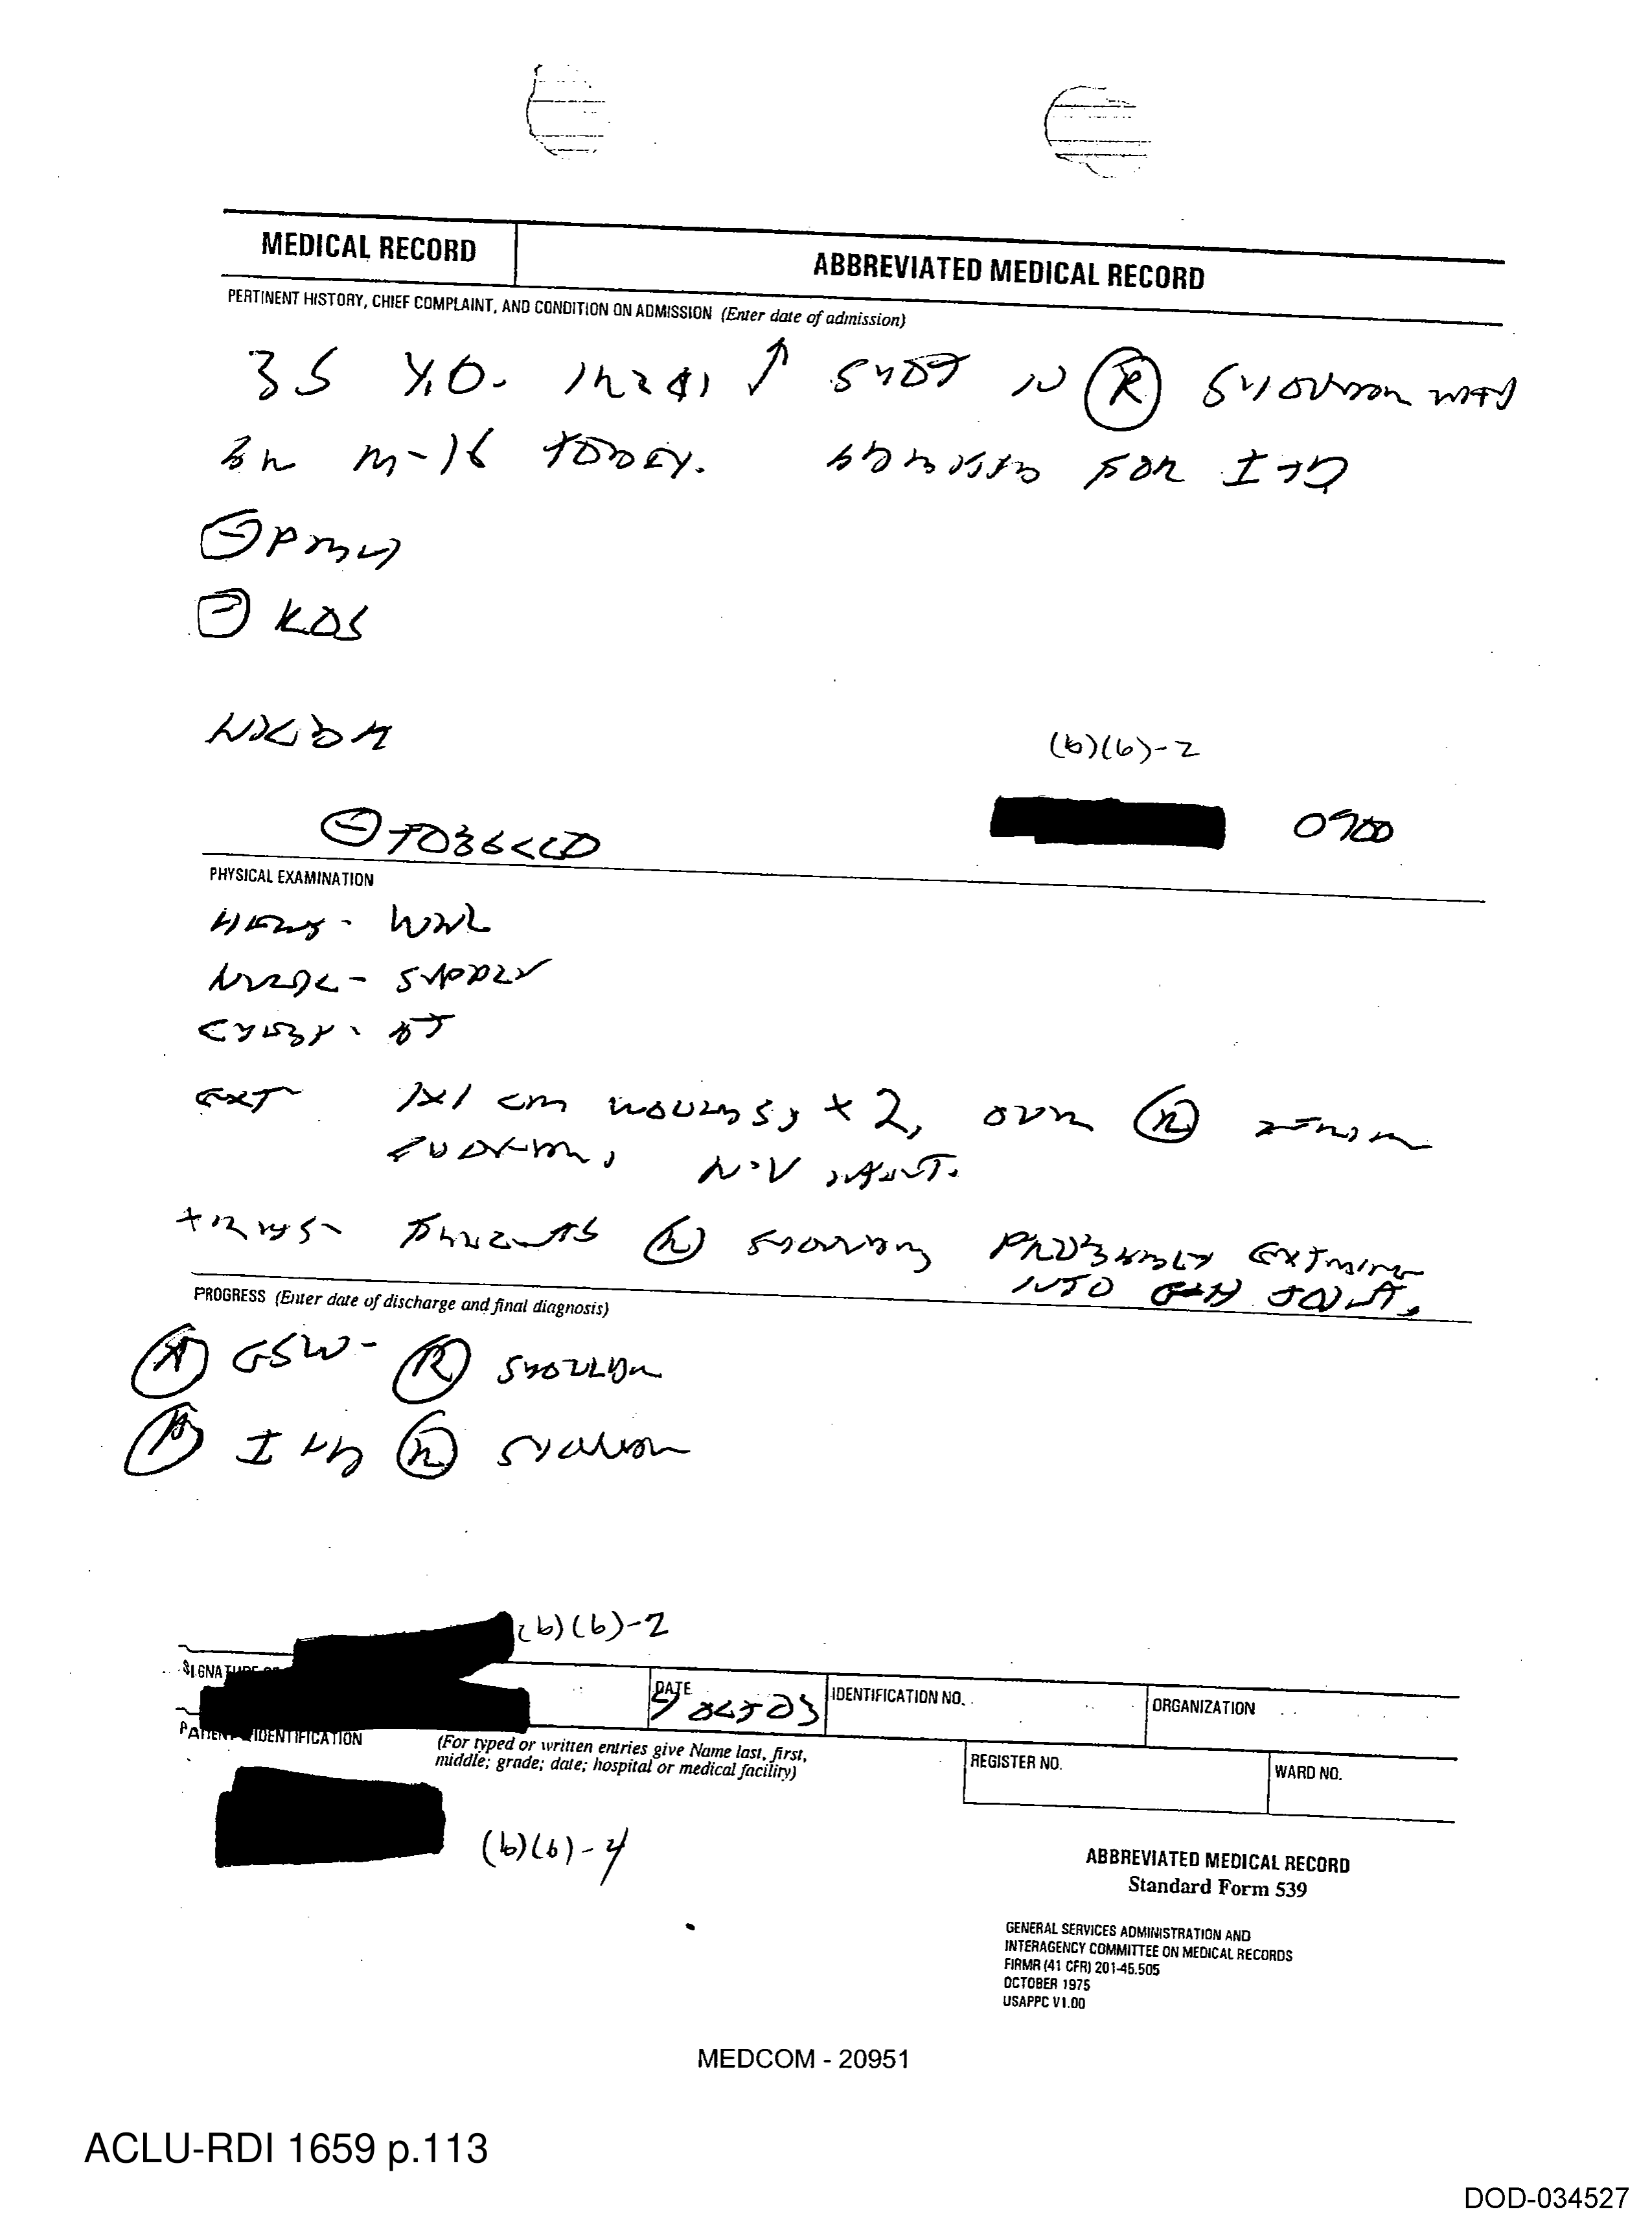 MEDICAL RECORD
ABBREVIATED MEDICAL RECORD
PERTINENT HISTORY, CHIEF COMPLAINT, AND CONDITION ON ADMISSION (Enter date of admission)
35 Y.O. IRAQI ↑ SHOT IN (R) SHOULDER WITH
M-16 TODAY. ADMITTED FOR I+D
(-) PMH
(-) KDS
NKDA
(b)(6)-2
0900
(-) TOBACCO
PHYSICAL EXAMINATION
HEENT - WNL
NECK - SUPPLE
CHEST -
EXT 1x1 cm WOUNDS x 2, OVER (R)
SHOULDER, N-V INTACT.
XRAYS - FRAGMENTS (R) SHOULDER PROBABLY EXTENDING
INTO G-H JOINT.
PROGRESS (Enter date of discharge and final diagnosis)
(A) GSW - (R) SHOULDER
(P) I+D (R) SHOULDER
(b)(6)-2
SIGNATURE
DATE
9 OCT 03
IDENTIFICATION NO.
ORGANIZATION
PATIENT IDENTIFICATION
(For typed or written entries give Name last, first,
middle; grade; date; hospital or medical facility)
REGISTER NO.
WARD NO.
(b)(6)-4
ABBREVIATED MEDICAL RECORD
Standard Form 539
GENERAL SERVICES ADMINISTRATION AND
INTERAGENCY COMMITTEE ON MEDICAL RECORDS
FIRMR (41 CFR) 201-45.505
OCTOBER 1975
USAPPC V1.00
MEDCOM - 20951
ACLU-RDI 1659 p.113
DOD-034527